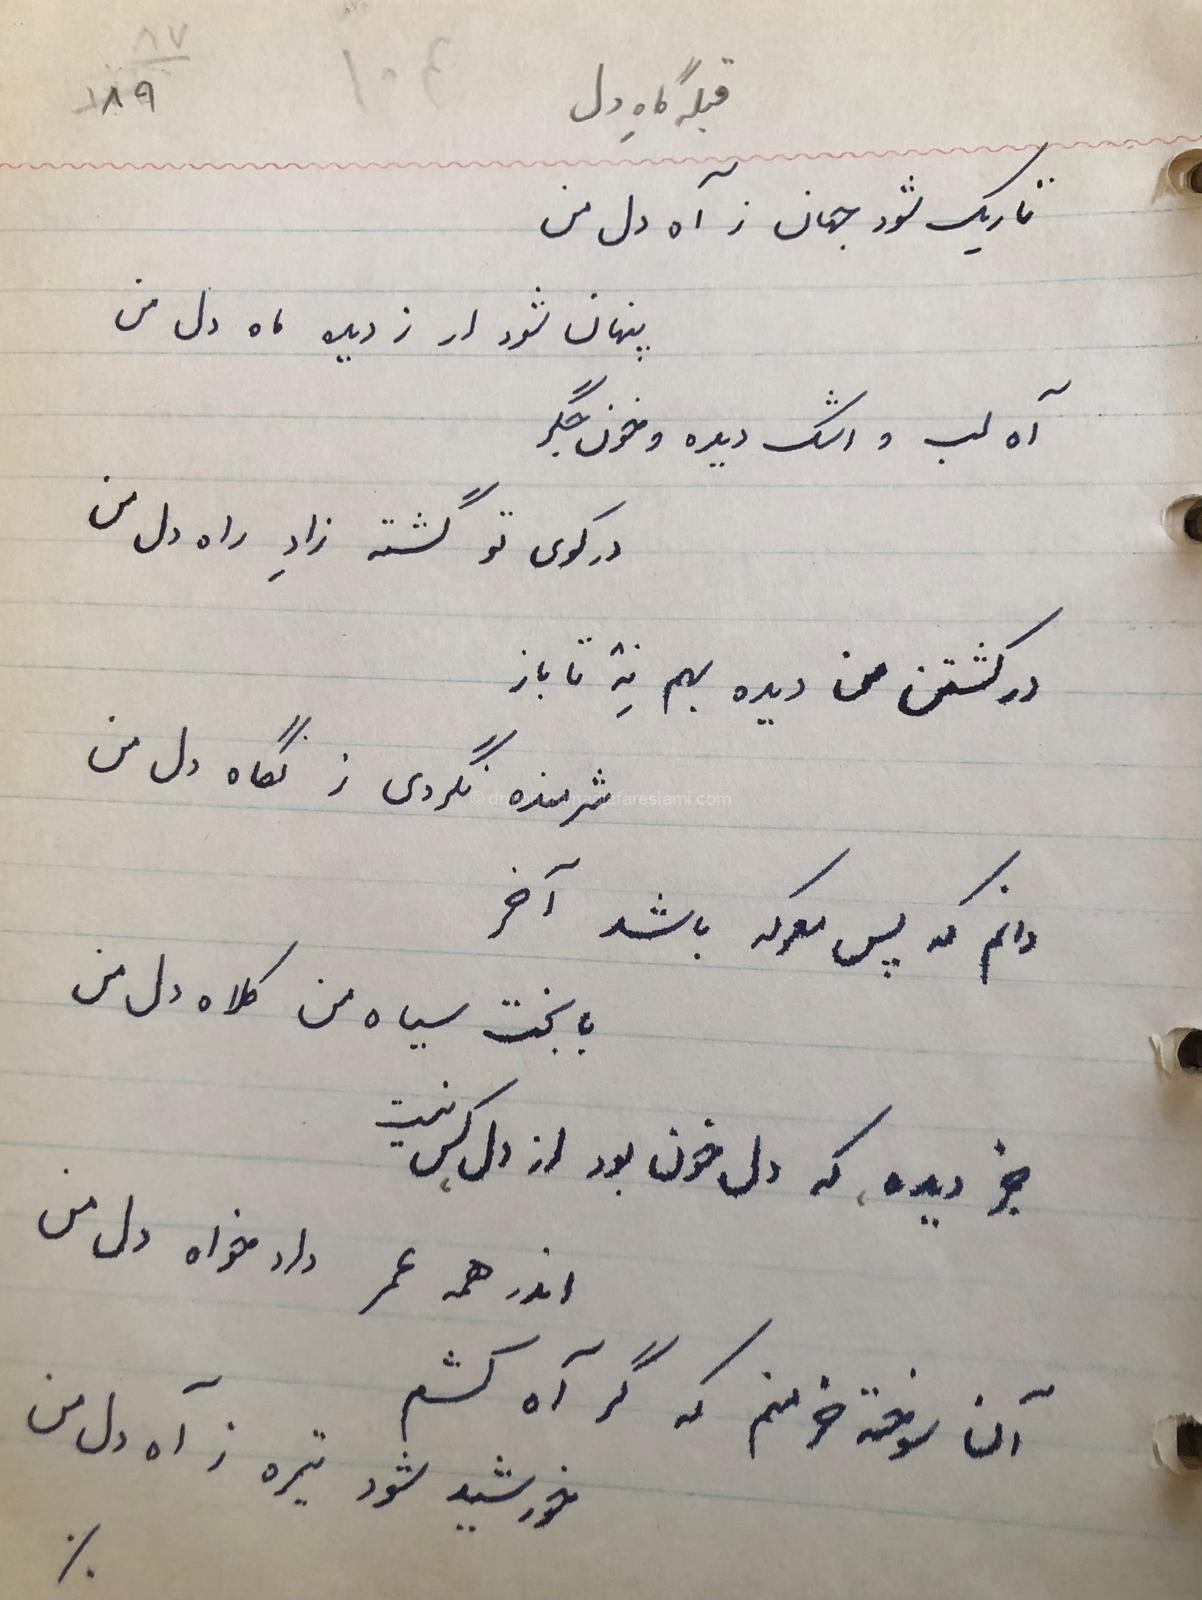 ۸۷
۱۸۹
۱۰۴
قبله گاهِ دل
تاریک شود جهان ز آه دل من
پنهان شود ار ز دیده ماه دل من
آه لب و اشک دیده و خون جگر
در کوی تو گشته زادِ راه دل من
در کشتن من دیده بهم نِهْ تا باز
شرمنده نگردی ز نگاه دل من
© dr
fareslami.com
دانم که پس معرکه باشد آخر
با بخت سیاه من کلاه دل من
جز دیده، که دل خون بود از دل کس نیست
اندر همه عمر دادخواه دل من
آن سوخته خرمنم که گر آه کشم
خورشید شود تیره ز آه دل من